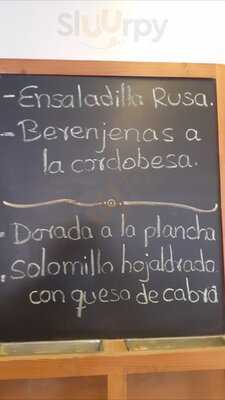 Sluurpy
- Ensaladilla Rusa.
- Berenjenas a
la cordobesa.
- Dorada a la plancha
. solomillo hojaldrado
con queso de cabra